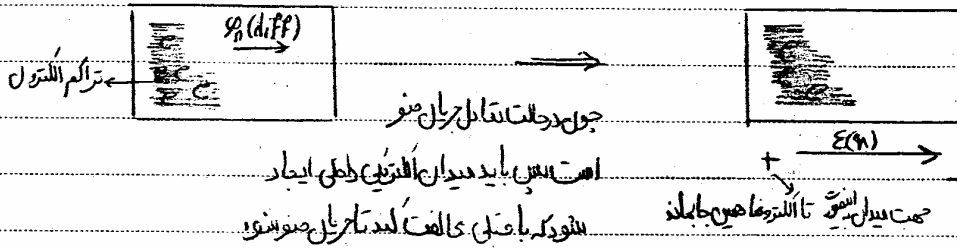 φₙ(diff)
تراکم الکترون
چون در حالت تعادل جریان صفر
است پس باید میدان الکتریکی داخلی ایجاد
شود که با قبلی مخالفت کند تا جریان صفر شود
ℰ(x)
+
جهت میدان اینطوری تا الکترونها همین جا بمانند